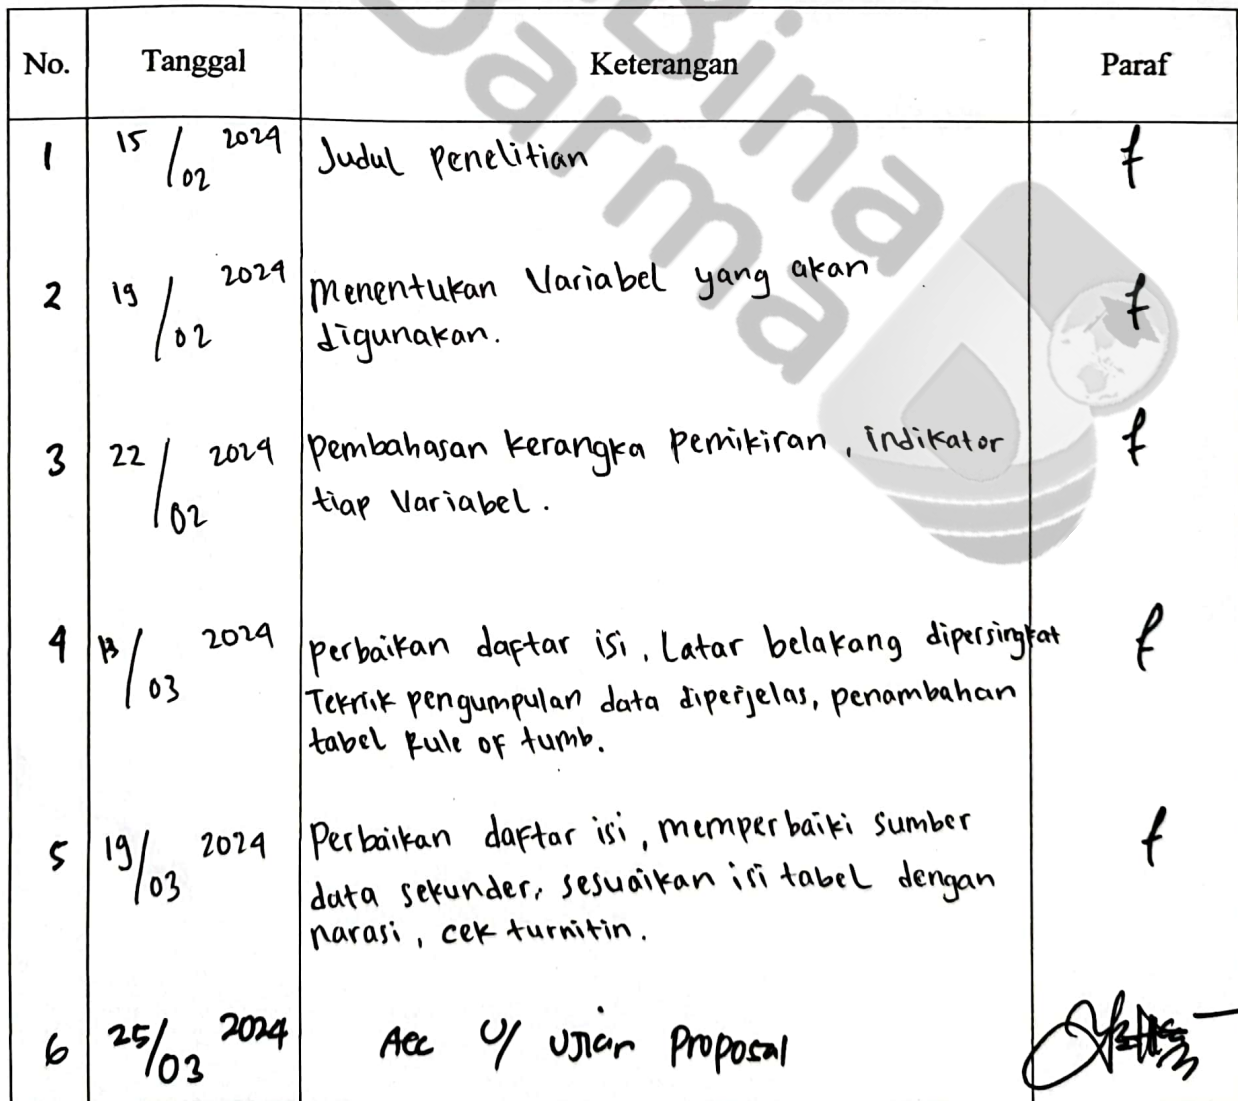 Bina
Darma
No. Tanggal Keterangan Paraf
1 15/02 2024 Judul Penelitian
2 19/02 2024 Menentukan Variabel yang akan
digunakan.
3 22/02 2024 Pembahasan kerangka pemikiran, indikator
tiap Variabel.
4 13/03 2024 perbaikan daftar isi, Latar belakang dipersingkat
Teknik pengumpulan data diperjelas, penambahan
tabel Rule of tumb.
5 19/03 2024 Perbaikan daftar isi, memperbaiki sumber
data sekunder, sesuaikan isi tabel dengan
narasi, cek turnitin.
6 25/03 2024 Acc U/ Ujian Proposal